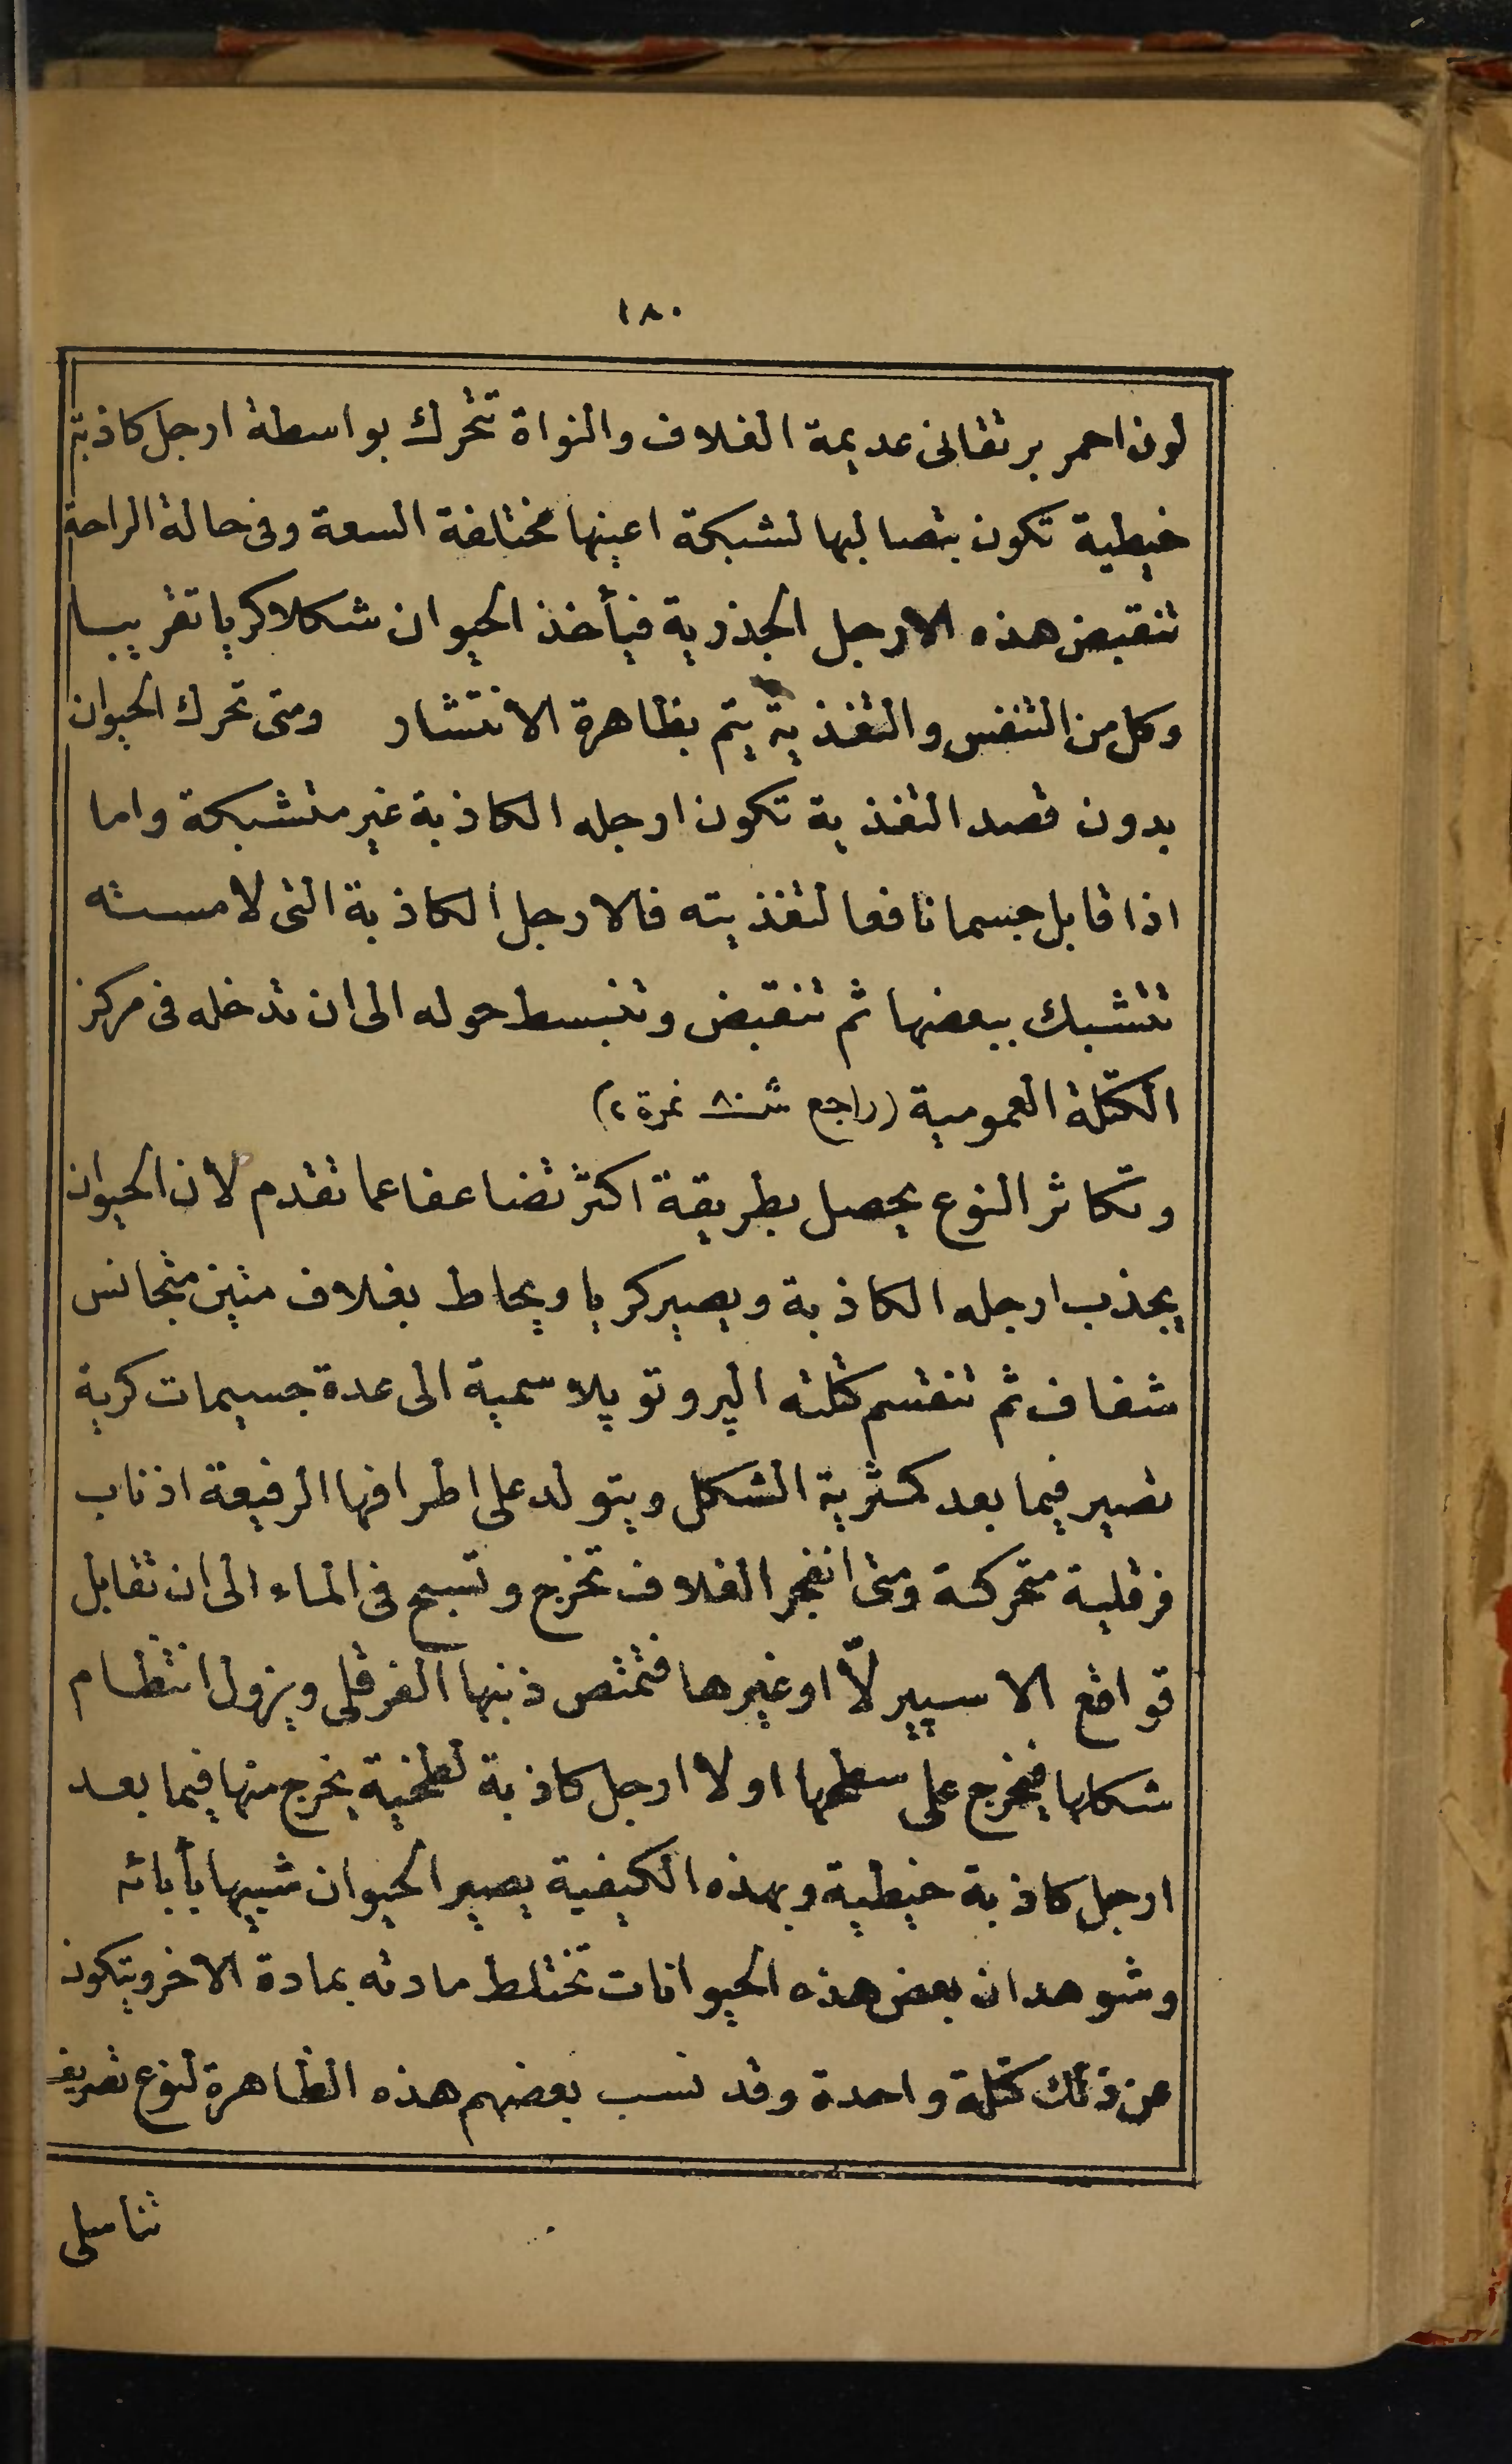 ١٨٠
لون احمر برتقانى عديمة الغلاف والنواة تتحرك بواسطة ارجل كاذبة
خيطية تكون بتصالبها لشبكة اعينها مختلفة السعة وفى حالة الراحة
تنقبض هذه الارجل الجذرية فيأخذ الحيوان شكلا كريا تقريبا
وكل من التنفس والتغذية يتم بظاهرة الانتشار ومتى تحرك الحيوان
بدون قصد التغذية تكون ارجله الكاذبة غير متشبكة واما
اذا قابل جسما نافعا لتغذيته فالارجل الكاذبة التى لامسته
تتشبك ببعضها ثم تنقبض وتنبسط حوله الى ان تدخله فى مركز
الكتلة العمومية (راجع شـ ٨٠ نمرة ٢)
وتكاثر النوع يحصل بطريقة اكثر تضاعفا عما تقدم لان الحيوان
يجذب ارجله الكاذبة ويصير كريا ويحاط بغلاف متين متجانس
شفاف ثم تنقسم كتلته الپروتوپلاسمية الى عدة جسيمات كرية
تصير فيما بعد كمثرية الشكل ويتولد على اطرافها الرفيعة اذناب
فرقلية متحركة ومتى انفجر الغلاف تخرج وتسبح فى الماء الى ان تقابل
قواقع الاسپيرلّا اوغيرها فتمتص ذنبها الفرقلى ويزول انتظام
شكلها فيخرج على سطحها اولا ارجل كاذبة لطخية يخرج منها فيما بعد
ارجل كاذبة خيطية وبهذه الكيفية يصير الحيوان شبيها بأبائه
وشوهد ان بعض هذه الحيوانات تختلط مادته بمادة الاخر ويتكون
عن ذلك كتلة واحدة وقد نسب بعضهم هذه الظاهرة لنوع
تناسلى